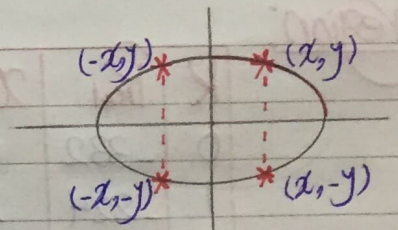 (-x,y) (x,y)
(-x,-y) (x,-y)